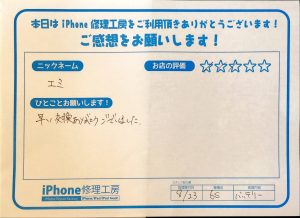 本日は iPhone 修理工房をご利用頂きありがとうございます！
ご感想をお願いします！
ニックネーム
お店の評価 ☆☆☆☆☆
エミ
ひとことお願いします！
早い交換ありがとうございました。
iPhone修理工房
8/23 6s バッテリー